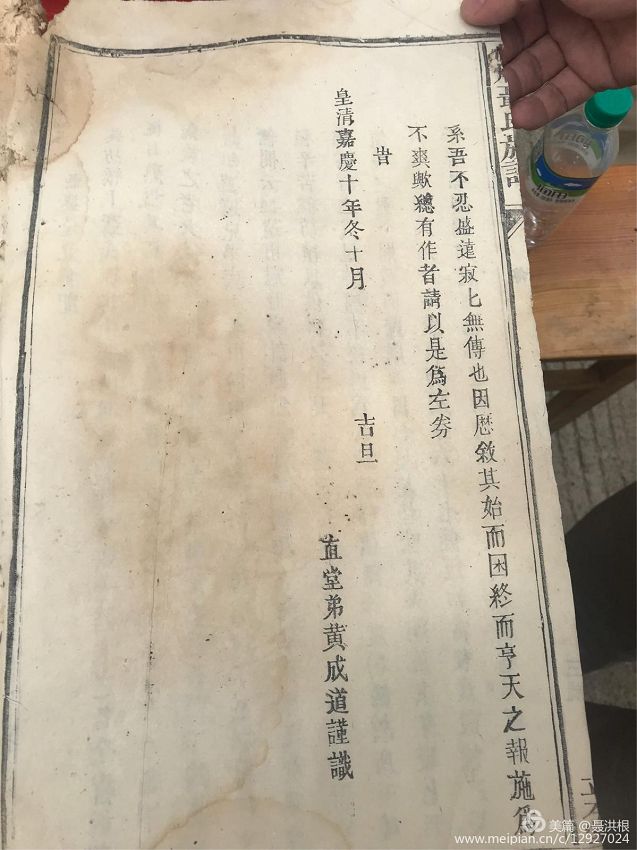 系吾不忍盛遠寂匕無傳也因歷敘其始而困終而亨天之報施爲
不爽歟總有作者請以是爲左券
旹
皇清嘉慶十年冬十月
吉旦
直堂弟黃成道謹識
美篇 @聂洪根
www.meipian.cn/c/12927024